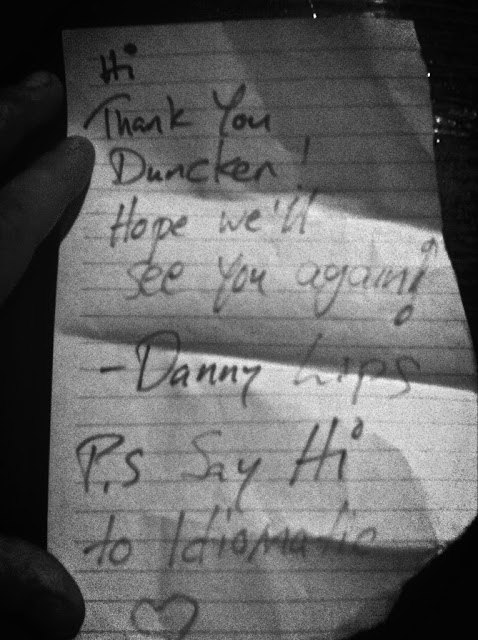 Hi
Thank You
Duncken!
Hope we'll
see you again!
-Danny Lips
P.S Say Hi
to Idiomatic
♡